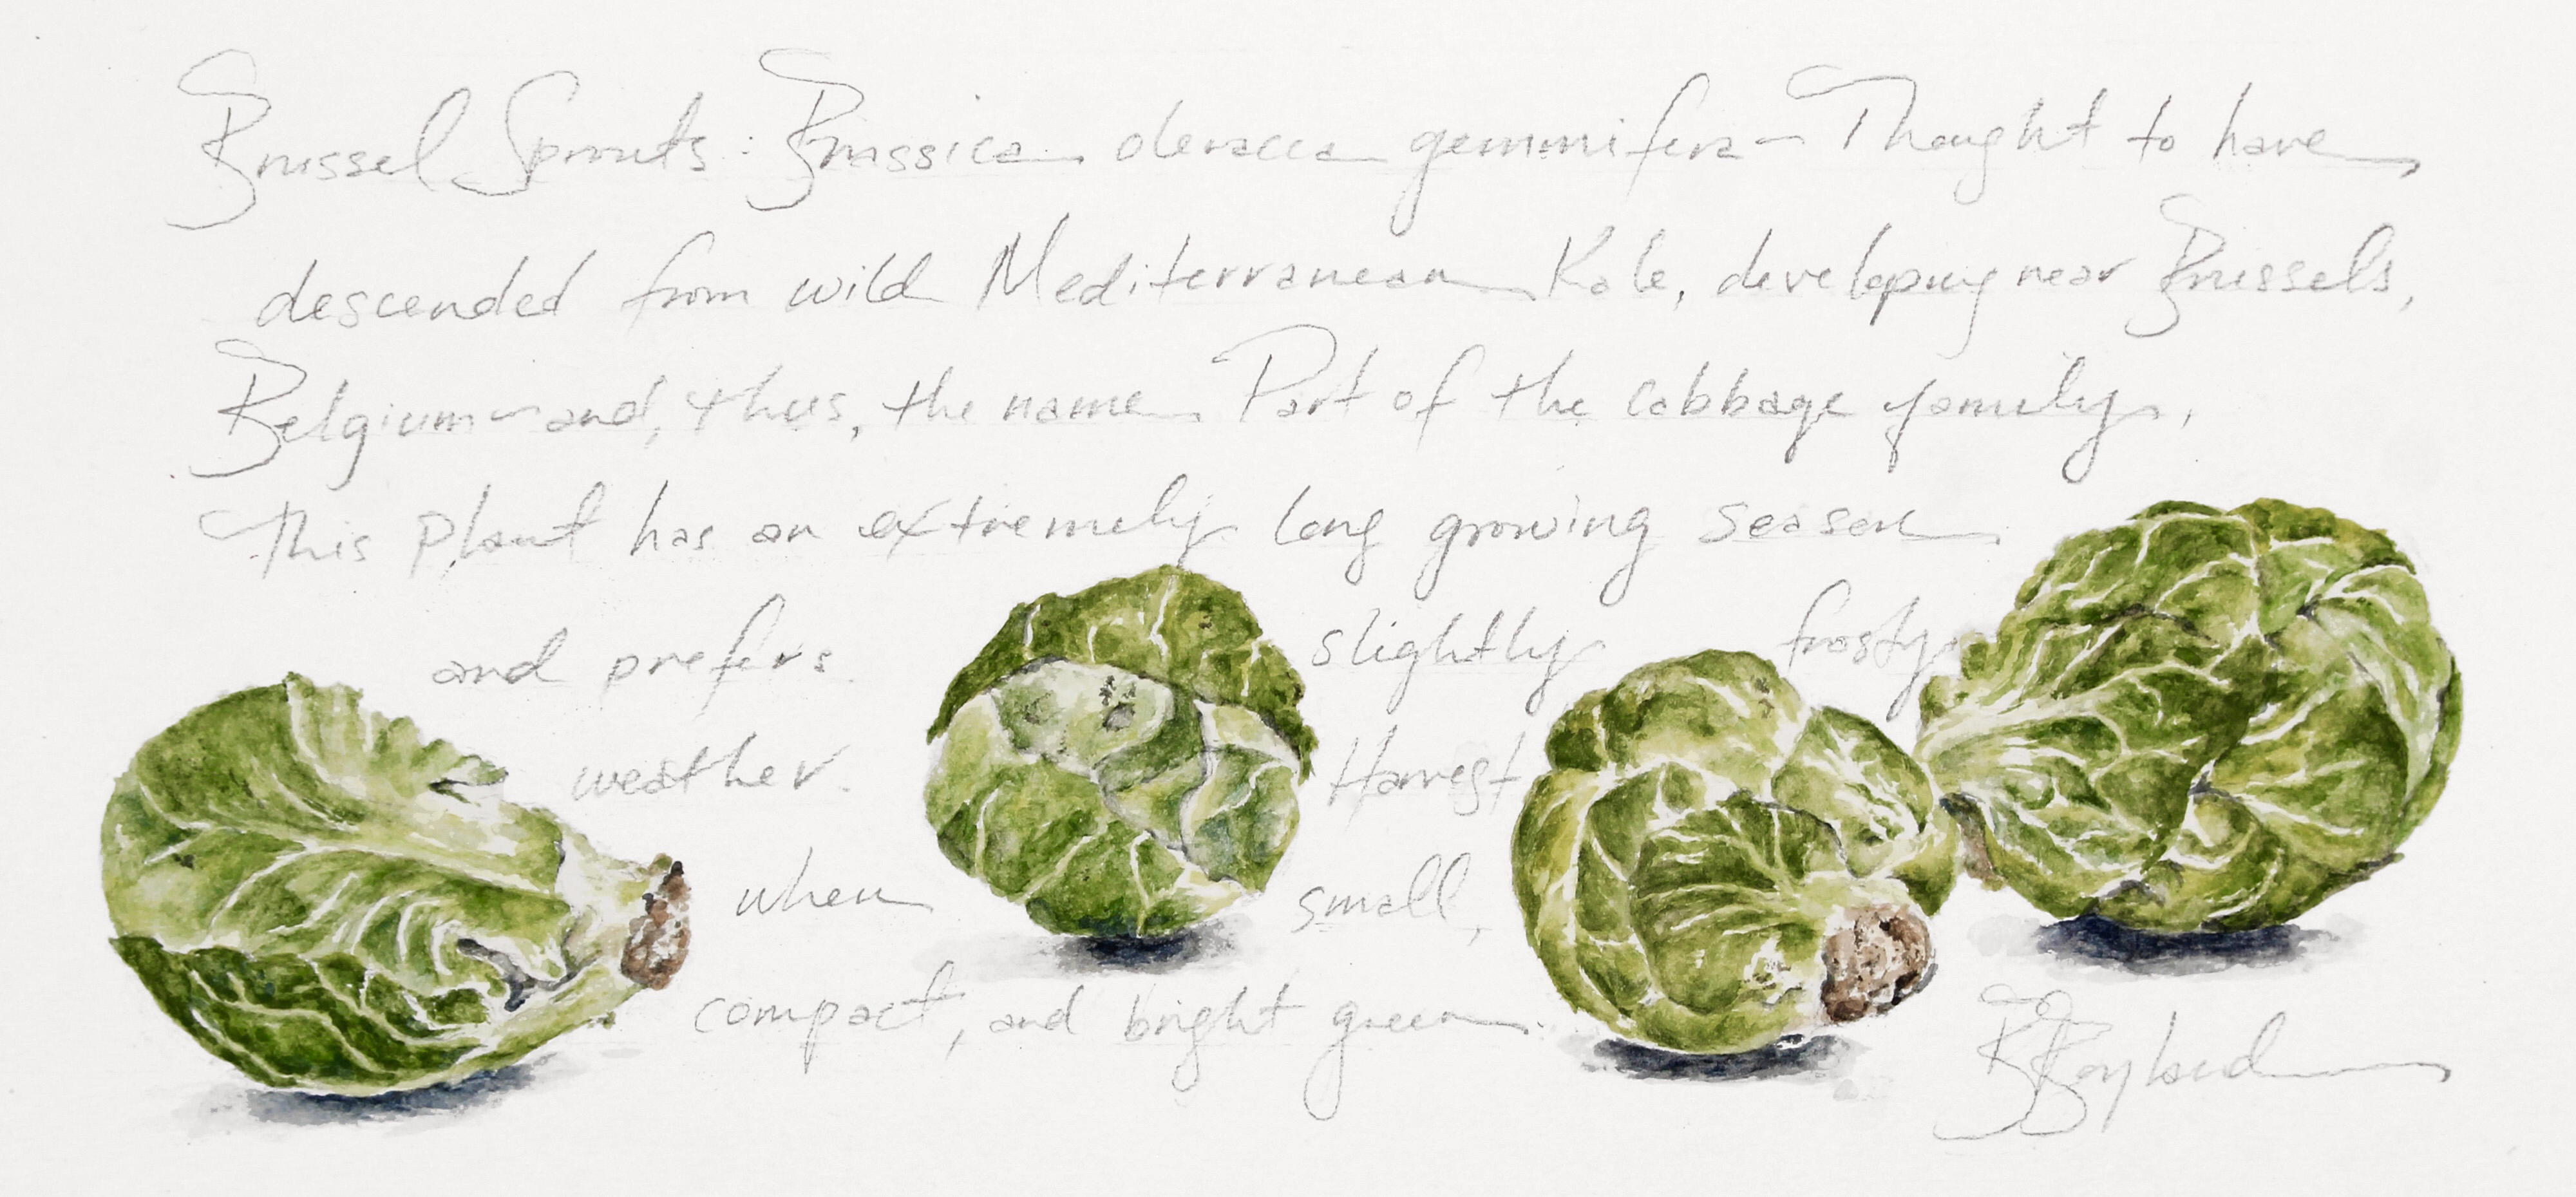 Brussel Sprouts: Brassica oleracea gemmifera - Thought to have
descended from wild Mediterranean Kale, developing near Brussels,
Belgium - and, thus, the name. Part of the cabbage family,
this plant has an extremely long growing season
and prefers slightly frosty
weather. Harvest
when small,
compact, and bright green.